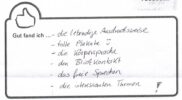 Gut fand ich ... - die lebendige Ausdrucksweise
- tolle Plakate ü
- die Körpersprache
- den Blickkontakt
- das freie Sprechen
- die interessanten Themen !